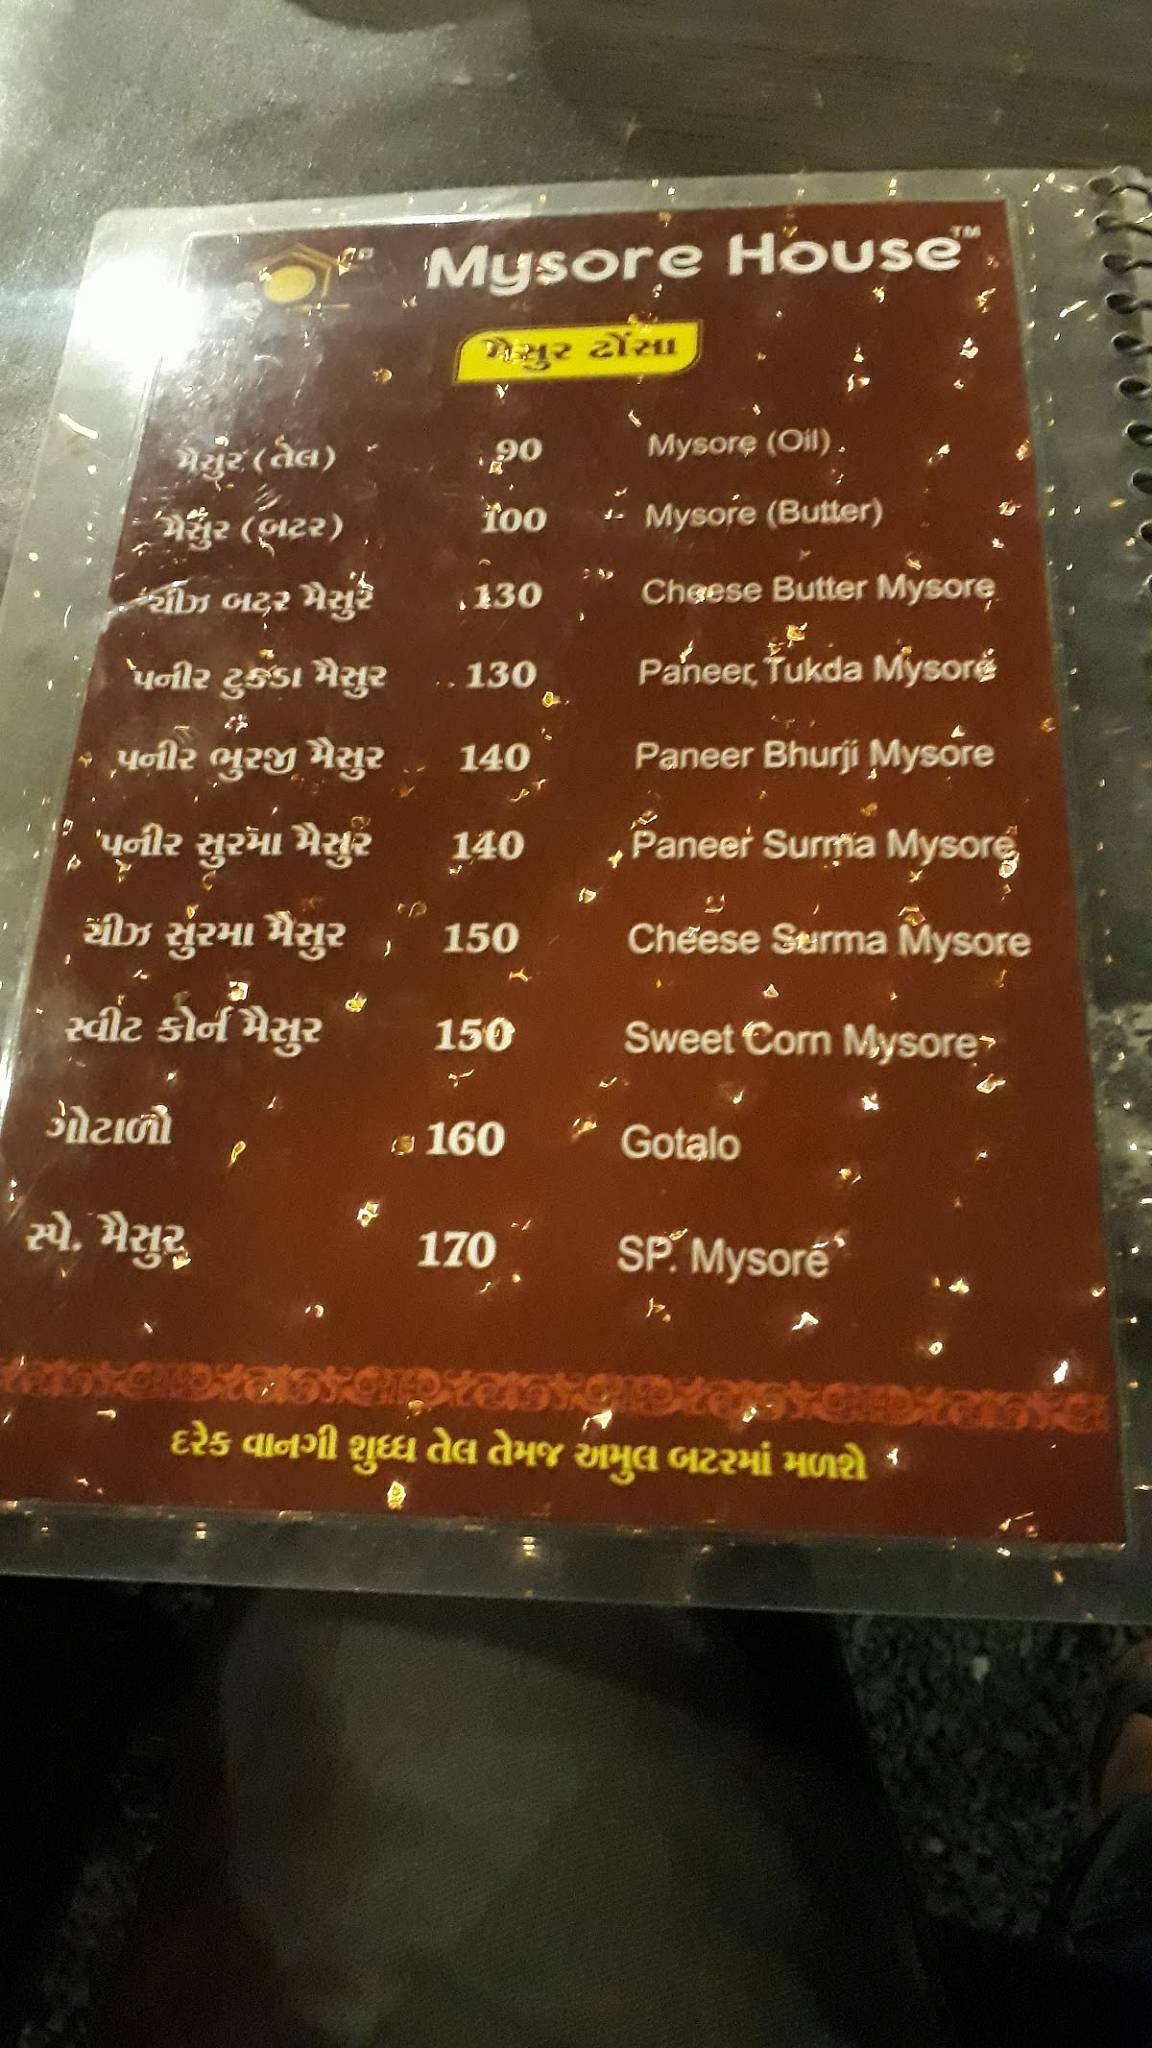 Mysore House™
મૈસુર ઢોંસા
મૈસુર (તેલ) 90 Mysore (Oil)
મૈસુર (બટર) 100 Mysore (Butter)
ચીઝ બટર મૈસુર 130 Cheese Butter Mysore
પનીર ટુકડા મૈસુર 130 Paneer Tukda Mysore
પનીર ભુરજી મૈસુર 140 Paneer Bhurji Mysore
પનીર સુરમા મૈસુર 140 Paneer Surma Mysore
ચીઝ સુરમા મૈસુર 150 Cheese Surma Mysore
સ્વીટ કોર્ન મૈસુર 150 Sweet Corn Mysore
ગોટાળો 160 Gotalo
સ્પે. મૈસુર 170 SP. Mysore
દરેક વાનગી શુધ્ધ તેલ તેમજ અમુલ બટરમાં મળશે